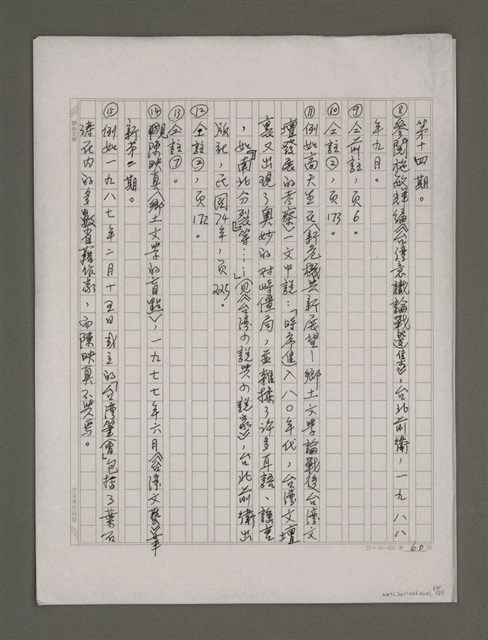 第十四期。
⑧參閱施敏輝編《台灣意識論戰選集》，台北前衛，一九八八
年九月。
⑨仝前註，頁6。
⑩仝註③，頁173。
⑪例如高天生在〈新危機與新展望—鄉土文學論戰後台灣文
壇發展的考察〉一文中說：「時序進入八〇年代，台灣文壇
裏又出現了奧妙的對峙僵局，並雜揉了許多耳語、謠言
，如『南北分裂』等……」見《台灣小說與小說家》，台北前衛出
版社，民國74年，頁225。
⑫仝註③，頁172。
⑬仝註⑦。
⑭觀陳映真〈鄉土文學的盲點〉，一九七七年六月《台灣文藝》革
新第二期。
⑮例如一九八七年二月十五日成立的「台灣筆會」包括了葉石
濤在內的多數省籍作家，而陳映真不與焉。
60